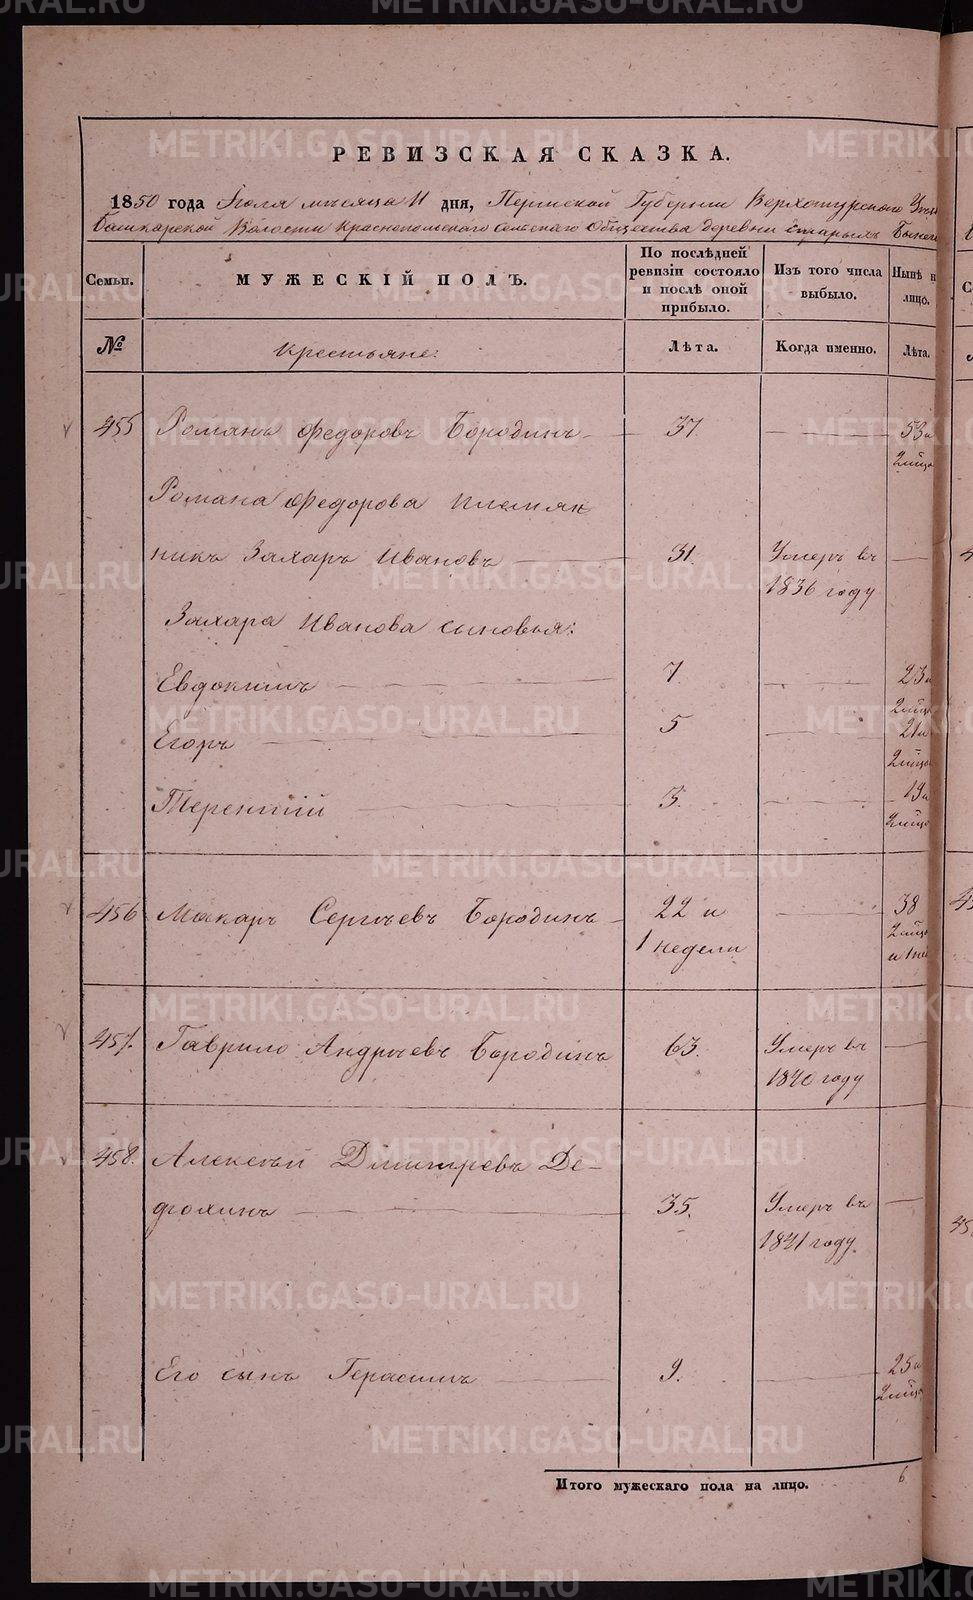 РЕВИЗСКАЯ СКАЗКА.
1850 года Июля мѣсяца 11 дня, Пермской Губернии Верхотурского
Башкарской Волости Краснопольского Сельского Общества деревни Старыхъ
Семьи. МУЖЕСКІЙ ПОЛЪ. По послѣдней ревизіи состояло и послѣ оной прибыло. Изъ того числа выбыло. Нынѣ н лицо.
№ Крестьяне: Лѣта. Когда именно. Лѣта.
455 Романъ Федоровъ Бородинъ 37. 53 и
2 мѣс
Романа Федорова племян
никъ Захаръ Ивановъ 31. Умеръ въ
1836 году
Захара Иванова сыновья:
Евдокимъ 7. 23 и
2 мѣс
Егоръ 5 21 и
2 мѣс
Терентий 3. 19 и
2 мѣс
456 Макаръ Сергѣевъ Бородинъ 22 и 38
1 недели 2 мѣс
и 1 не
457. Гаврило Андрѣевъ Бородинъ 63. Умеръ въ
1840 году
458. Алексѣй Дмитревъ Де-
дюхинъ 35. Умеръ въ
1841 году.
Его сынъ Герасимъ 9. 25 и
2 мѣс
Итого мужескаго пола на лицо. 6
METRIKI.GASO-URAL.RU